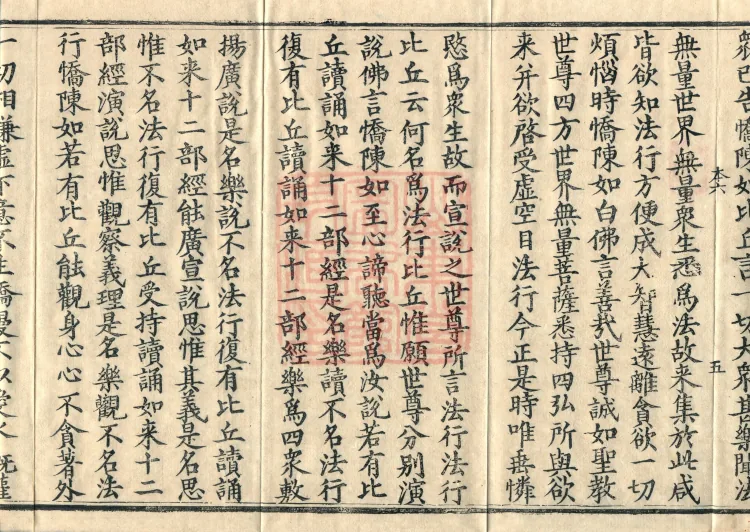 無量世界無量衆生悉爲法故来集於此咸
皆欲知法行方便成大智慧遠離貪欲一切
煩惱時憍陳如白佛言善哉世尊誠如聖教
世尊四方世界無量菩薩悉持四弘所與欲
来并欲啓受虛空目法行今正是時唯垂憐
愍爲衆生故而宣說之世尊所言法行法行
比丘云何名爲法行比丘惟願世尊分别演
說佛言憍陳如至心諦聽當爲汝說若有比
丘讀誦如来十二部經是名樂讀不名法行
復有比丘讀誦如来十二部經樂爲四衆敷
揚廣說是名樂說不名法行復有比丘讀誦
如来十二部經能廣宣說思惟其義是名思
惟不名法行復有比丘受持讀誦如来十二
部經演說思惟觀察義理是名樂觀不名法
行憍陳如若有比丘能觀身心心不貪著外
五